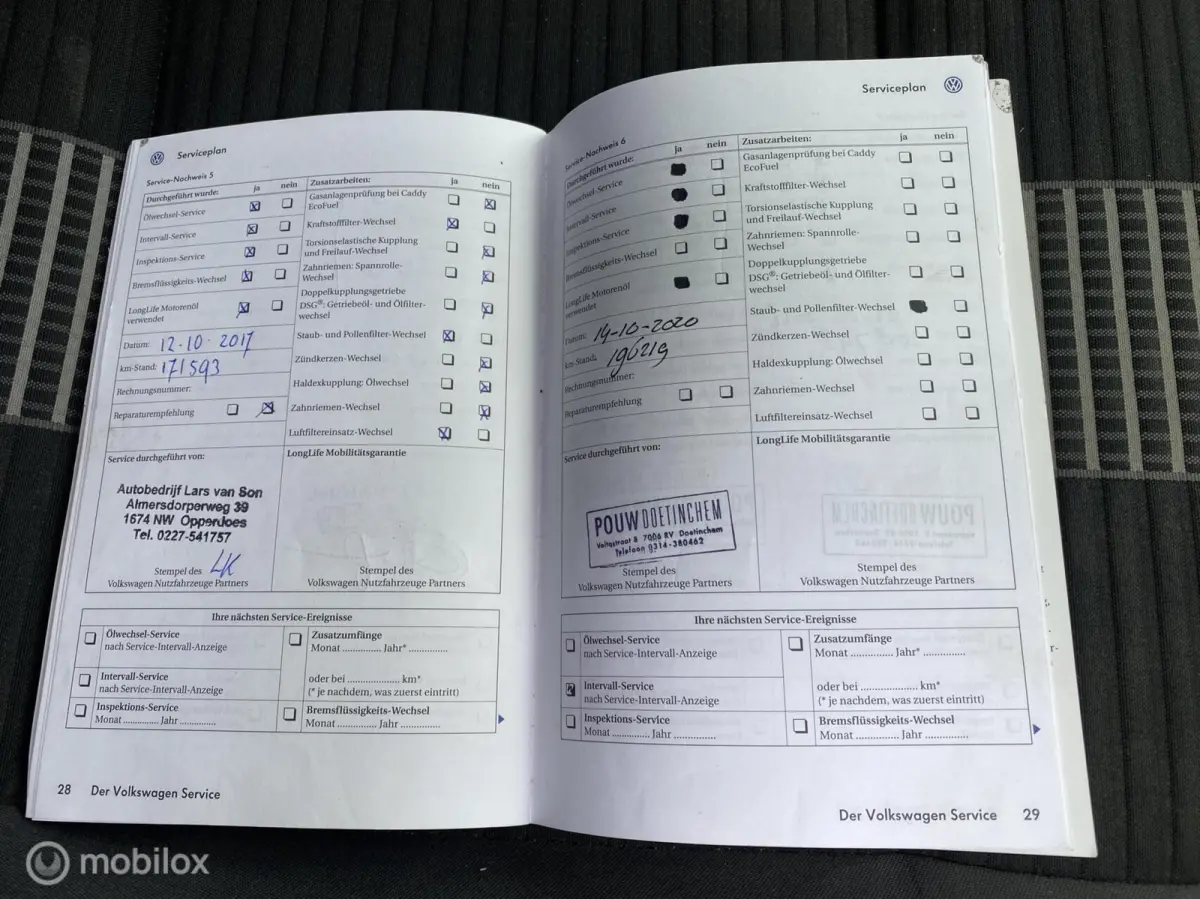 Serviceplan
Service-Nachweis 5
Durchgeführt wurde: ja nein
Ölwechsel-Service
Intervall-Service
Inspektions-Service
Bremsflüssigkeits-Wechsel
LongLife Motorenöl
verwendet
Datum: 12-10-2017
km-Stand: 171593
Rechnungsnummer:
Reparaturempfehlung
Zusatzarbeiten: ja nein
Gasanlagenprüfung bei Caddy
EcoFuel
Kraftstofffilter-Wechsel
Torsionselastische Kupplung
und Freilauf-Wechsel
Zahnriemen: Spannrolle-
Wechsel
Doppelkupplungsgetriebe
DSG®: Getriebeöl- und Ölfilter-
wechsel
Staub- und Pollenfilter-Wechsel
Zündkerzen-Wechsel
Haldexkupplung: Ölwechsel
Zahnriemen-Wechsel
Luftfiltereinsatz-Wechsel
Service durchgeführt von:
Autobedrijf Lars van Son
Almersdorperweg 39
1674 NW Opperdoes
Tel. 0227-541757
Stempel des
Volkswagen Nutzfahrzeuge Partners
LongLife Mobilitätsgarantie
Stempel des
Volkswagen Nutzfahrzeuge Partners
Ihre nächsten Service-Ereignisse
Ölwechsel-Service
nach Service-Intervall-Anzeige
Intervall-Service
nach Service-Intervall-Anzeige
Inspektions-Service
Monat ............. Jahr .............
Zusatzumfänge
Monat ............. Jahr* .............
oder bei .................... km*
(* je nachdem, was zuerst eintritt)
Bremsflüssigkeits-Wechsel
Monat ............. Jahr .............
28 Der Volkswagen Service
Serviceplan
Service-Nachweis 6
Durchgeführt wurde: ja nein
Ölwechsel-Service
Intervall-Service
Inspektions-Service
Bremsflüssigkeits-Wechsel
LongLife Motorenöl
verwendet
Datum: 14-10-2020
km-Stand: 196219
Rechnungsnummer:
Reparaturempfehlung
Zusatzarbeiten: ja nein
Gasanlagenprüfung bei Caddy
EcoFuel
Kraftstofffilter-Wechsel
Torsionselastische Kupplung
und Freilauf-Wechsel
Zahnriemen: Spannrolle-
Wechsel
Doppelkupplungsgetriebe
DSG®: Getriebeöl- und Ölfilter-
wechsel
Staub- und Pollenfilter-Wechsel
Zündkerzen-Wechsel
Haldexkupplung: Ölwechsel
Zahnriemen-Wechsel
Luftfiltereinsatz-Wechsel
Service durchgeführt von:
POUW DOETINCHEM
Voltastraat 8 7006 RV Doetinchem
Telefoon 0314-380462
Stempel des
Volkswagen Nutzfahrzeuge Partners
LongLife Mobilitätsgarantie
Stempel des
Volkswagen Nutzfahrzeuge Partners
Ihre nächsten Service-Ereignisse
Ölwechsel-Service
nach Service-Intervall-Anzeige
Intervall-Service
nach Service-Intervall-Anzeige
Inspektions-Service
Monat ............. Jahr .............
Zusatzumfänge
Monat ............. Jahr* .............
oder bei .................... km*
(* je nachdem, was zuerst eintritt)
Bremsflüssigkeits-Wechsel
Monat ............. Jahr .............
Der Volkswagen Service 29
mobilox